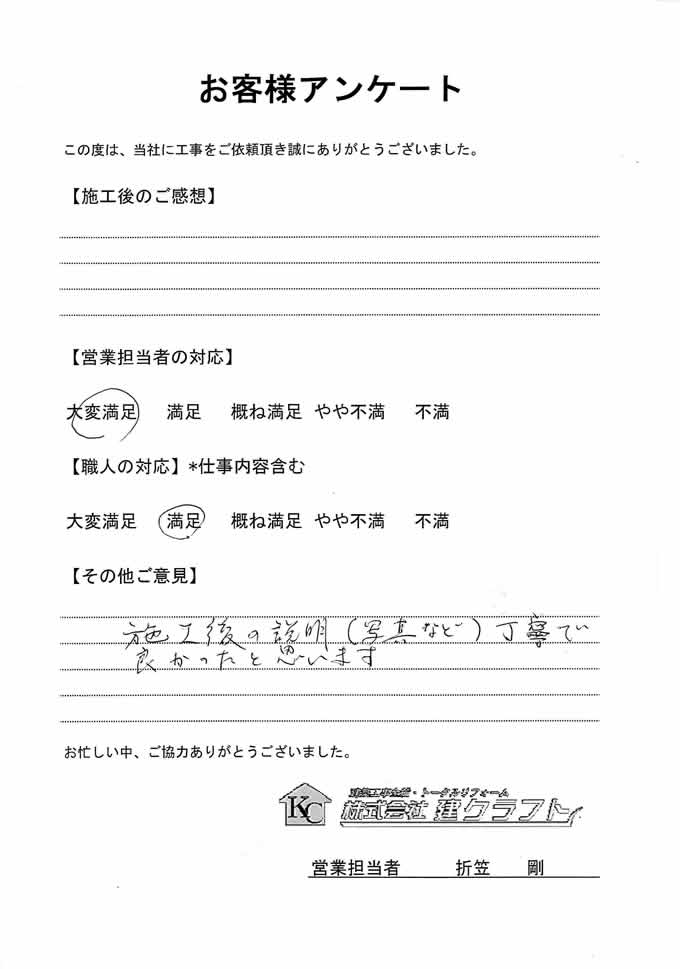 お客様アンケート
この度は、当社に工事をご依頼頂き誠にありがとうございました。
【施工後のご感想】
【営業担当者の対応】
大変満足 満足 概ね満足 やや不満 不満
【職人の対応】*仕事内容含む
大変満足 満足 概ね満足 やや不満 不満
【その他ご意見】
施工後の説明(写真など)丁寧で
良かったと思います
お忙しい中、ご協力ありがとうございました。
建築工事全般・トータルリフォーム
KC 株式会社 建クラフト
営業担当者 折笠 剛